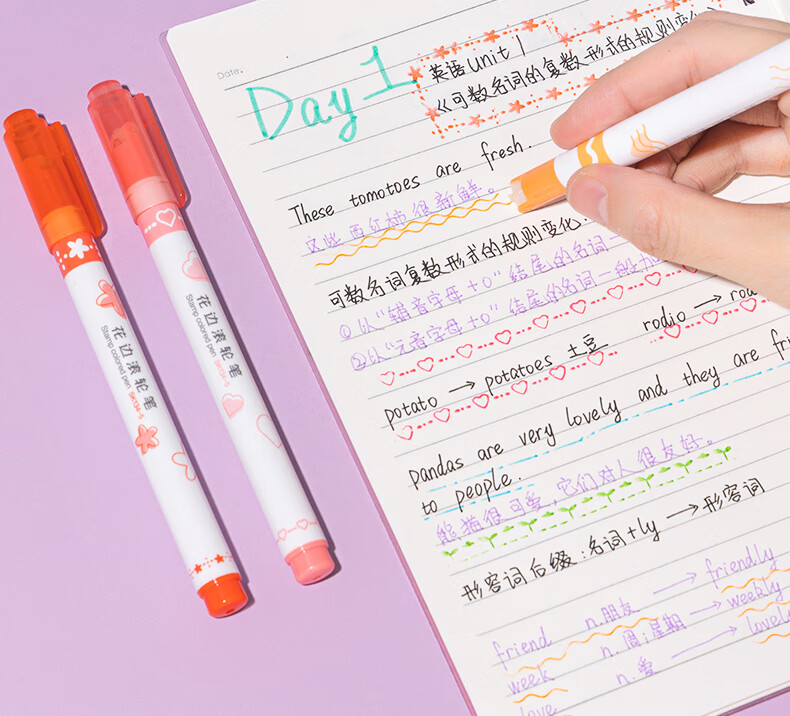 Date.
Day 1
英语 Unit 1
《可数名词的复数形式的规则变化
These tomotoes are fresh.
这些西红柿很新鲜。
可数名词复数形式的规则变化.
①以"辅音字母+o"结尾的名词
②以"元音字母+o"结尾的名词一般加
potato → potatoes 土豆 rodio →
pandas are very lovely and they are
to people.
熊猫很可爱,它们对人很友好。
形容词后缀:名词+ly → 形容词
friend n.朋友 → friendly
week n.周;星期 → weebly
love n.爱 → lovely
花边滚轮笔
Stamp colored pen
花边滚轮笔
Stamp colored pen